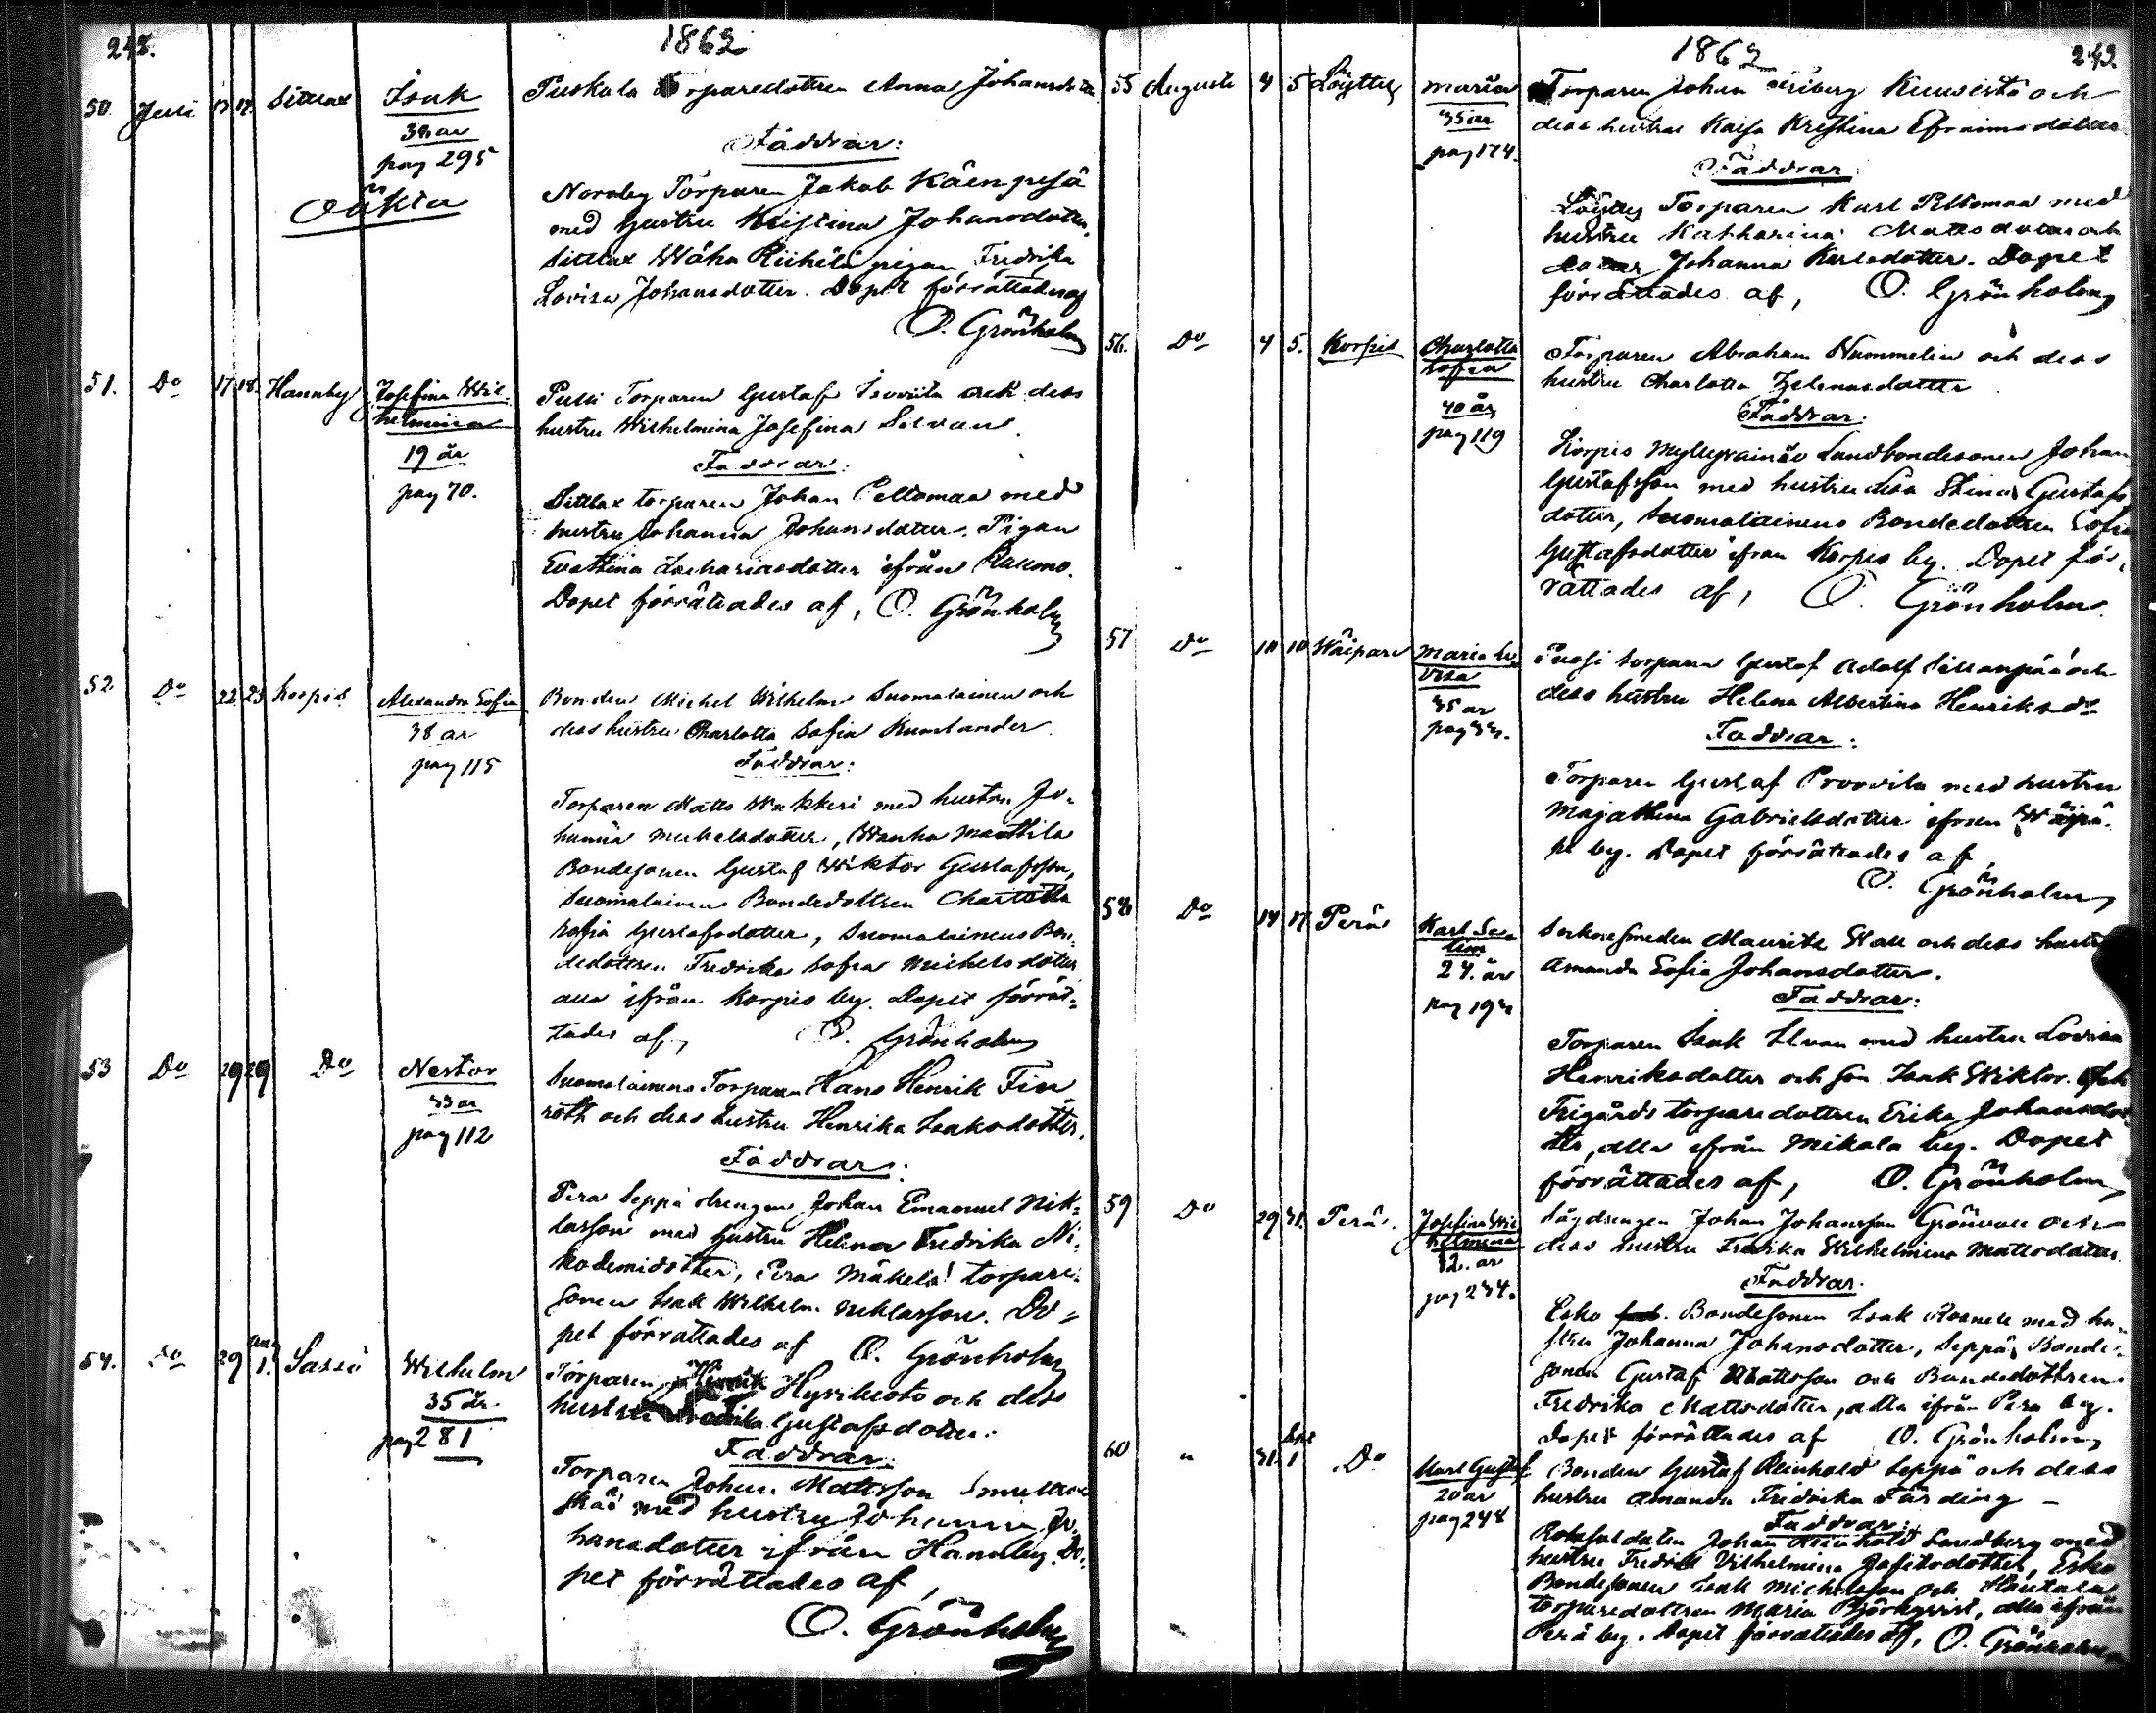 242.
1862
50. Juli 17 17. Sittlax Isak
38 år
pag 295
Oäkta
Puskala Torparedottren Anna Johansdotter
Faddrar:
Norrby Torparen Jakob Käenpesä
med hustru Kristina Johansdotter,
Sittlax Wäha Riihelä pigan Fredrika
Lovisa Johansdotter. Dopet förrättades af
O. Grönholm
51. Do 17 18. Hannby Josefina Wil-
helmina
19 år
pag 70.
Pussi Torparen Gustaf Isoviita och dess
hustru Wilhelmina Josefina Silvan
Faddrar:
Sittlax torparen Johan Peltomaa med
hustru Johanna Johansdotter. Pigan
Eva Stina Zachariasdotter ifrån Raumo.
Dopet förrättades af, O. Grönholm
52 Do 22 23 Korpis Alexandra Sofia
38 år
pag 115
Bonden Michel Wilhelm Suomalainen och
dess hustru Charlotta Sofia Kumlander
Faddrar:
Torparen Matts Wakkeri med hustru Jo-
hanna Michelsdotter, Wanha Manttila
Bondesonen Gustaf Wiktor Gustafsson,
Suomalainen Bondedottren Charlotta
Sofia Gustafsdotter, Suomalainens Bon-
dedottren Fredrika Sofia Michelsdotter
alla ifrån Korpis by. Dopet förrät-
tades af, O. Grönholm
53 Do 29 29 Do Nestor
33 år
pag 112
Suomalainens Torparen Hans Henrik Fin
roth och dess hustru Henrika Isaksdotter.
Faddrar:
Perä Seppä drengen Johan Emanuel Nik-
lasson med hustru Helena Fredrika Ni-
kodemidotter, Perä Mäkelä torpare-
sonen Isak Wilhelm Niklasson. Do-
pet förrättades af O. Grönholm
54. Do 29 Aug 1. Sassi Wilhelm
35 år.
pag 281
Torparen Henrik Hyvihuoto och dess
hustru Gustafsdotter.
Faddrar.
Torparen Johan Mattsson
med hustru Johanna Jo-
hansdotter ifrån Hannby. Do-
pet förrättades af,
O. Grönholm
1862
243.
55 Augusti 4 5 Löyttyl Maria
35 år
pag 174.
Torparen Johan Friberg Kuusistä och
dess hustru Kajsa Kristina Efraimsdotter
Faddrar
Löyttyl Torparen Karl Peltomaa med
hustru Katharina Mattsdotter och
dotter Johanna Karlsdotter. Dopet
förrättades af, O. Grönholm
56. Do 4 5. Korpis Charlotta
Sofia
40 år
pag 119
Torparen Abraham Nummelin och dess
hustru Charlotta Zeleniusdotter
Faddrar:
Korpis Myllyvainio Landbondesonen Johan
Gustafsson med hustru Lisa Stina Gustafs
dotter, Suomalainens Bondedottren Sofia
Gustafsdotter ifrån Korpis by. Dopet för-
rättades af, O. Grönholm.
57 Do 10 10 Wäipare Maria Lo
visa
35 år
Puosi torparen Gustaf Adolf Sillanpää och
dess hustru Helena Albertina Henriksdr
Faddrar:
Torparen Gustaf Provvila med hustru
Maja Stina Gabrielsdotter ifrån Wäipä-
re by. Dopet förrättades af,
O. Grönholm
58 Do 14 17 Perä Karl
24. år
Sockensmeden Mauritz Wall och dess hustru
Amanda Sofia Johansdotter.
Faddrar:
Torparen Isak Silvan med hustru Lovisa
Henriksdotter och son Isak Wiktor. Och
Frigårds torparedottren Erika Johansdot-
ter, alla ifrån Mikola by. Dopet
förrättades af, O. Grönholm
59 Do 29 31. Perä. Josefina Wil
helmina
32. år
pag 234.
Sågdrengen Johan Johansson Grönroos och
dess hustru Fredrika Wilhelmina Mattsdotter
Faddrar.
Esko Bondesonen Isak Rosnell med hu-
stru Johanna Johansdotter, Seppä Bonde-
sonen Gustaf Mattsson och Bondedottren
Fredrika Mattsdotter, alla ifrån Perä by.
Dopet förrättades af O. Grönholm
60 " 31. Sept 1 Do Karl Gustaf
20 år
pag 248
Bonden Gustaf Reinhold Seppä och dess
hustru Amanda Fredrika Färding -
Faddrar:
Johan Reinhold Sandberg med
hustru Fredrika Vilhelmina Josefsdotter, Esko
Bondesonen Isak Michelsson och
torparedottren Maria Björkqvist, alla ifrån
Perä by. Dopet förrättades af, O. Grönholm